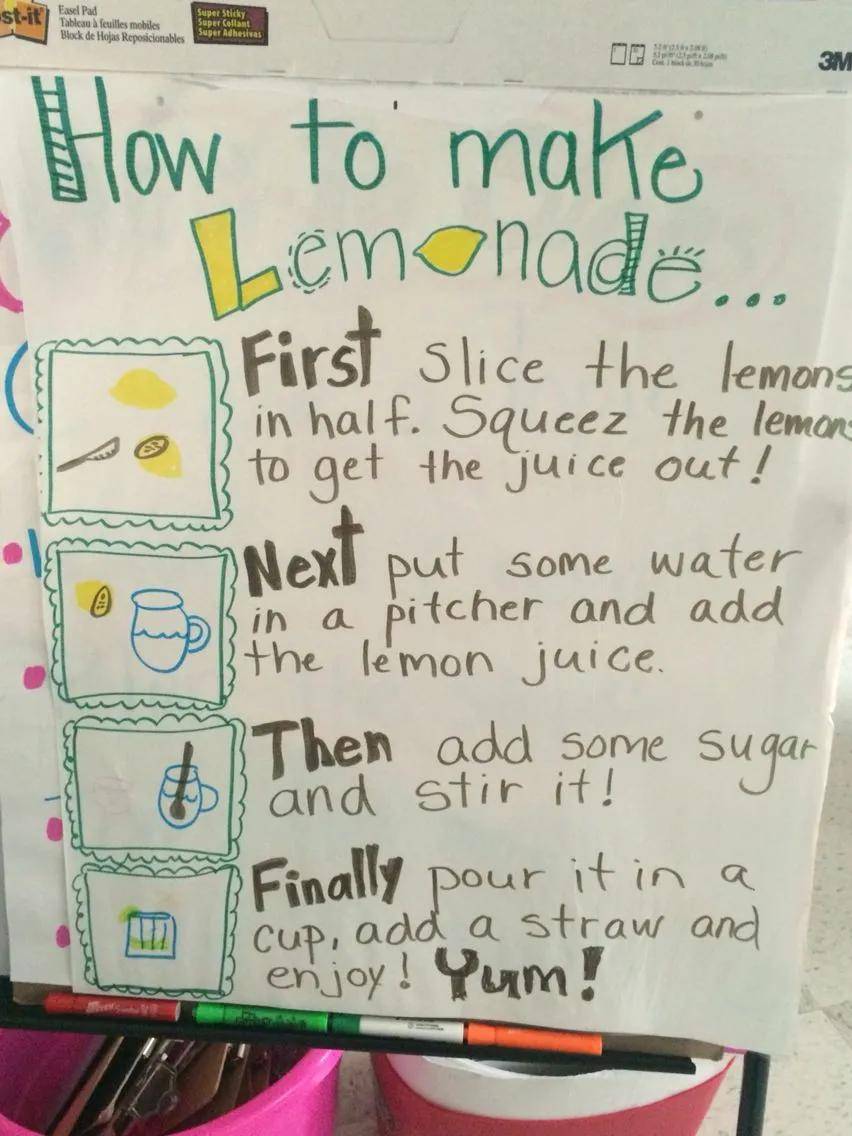 st-it
Easel Pad
Tableau à feuilles mobiles
Block de Hojas Reposicionables
Super Sticky
Super Collant
Super Adhesivas
3M
How to make
Lemonade...
First slice the lemons
in half. Squeez the lemons
to get the juice out!
Next put some water
in a pitcher and add
the lemon juice.
Then add some sugar
and stir it!
Finally pour it in a
cup, add a straw and
enjoy! Yum!